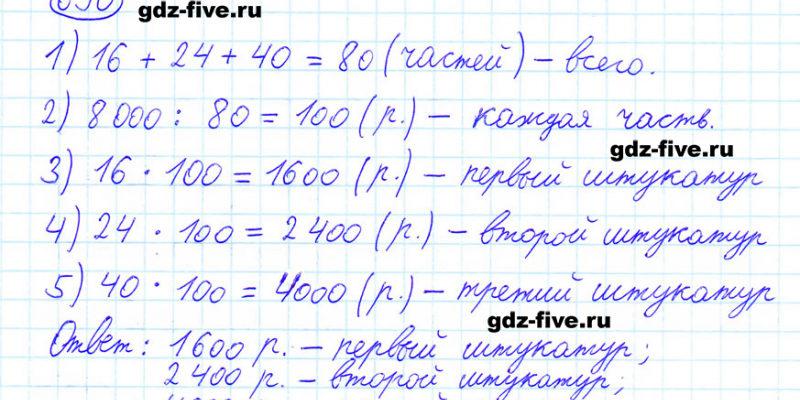 gdz-five.ru
1) 16 + 24 + 40 = 80 (частей) – всего.
2) 8 000 : 80 = 100 (р.) – каждая часть.
gdz-five.ru
3) 16 · 100 = 1600 (р.) – первый штукатур
4) 24 · 100 = 2 400 (р.) – второй штукатур
5) 40 · 100 = 4000 (р.) – третий штукатур
gdz-five.ru
Ответ: 1600 р. – первый штукатур;
2 400 р. – второй штукатур;